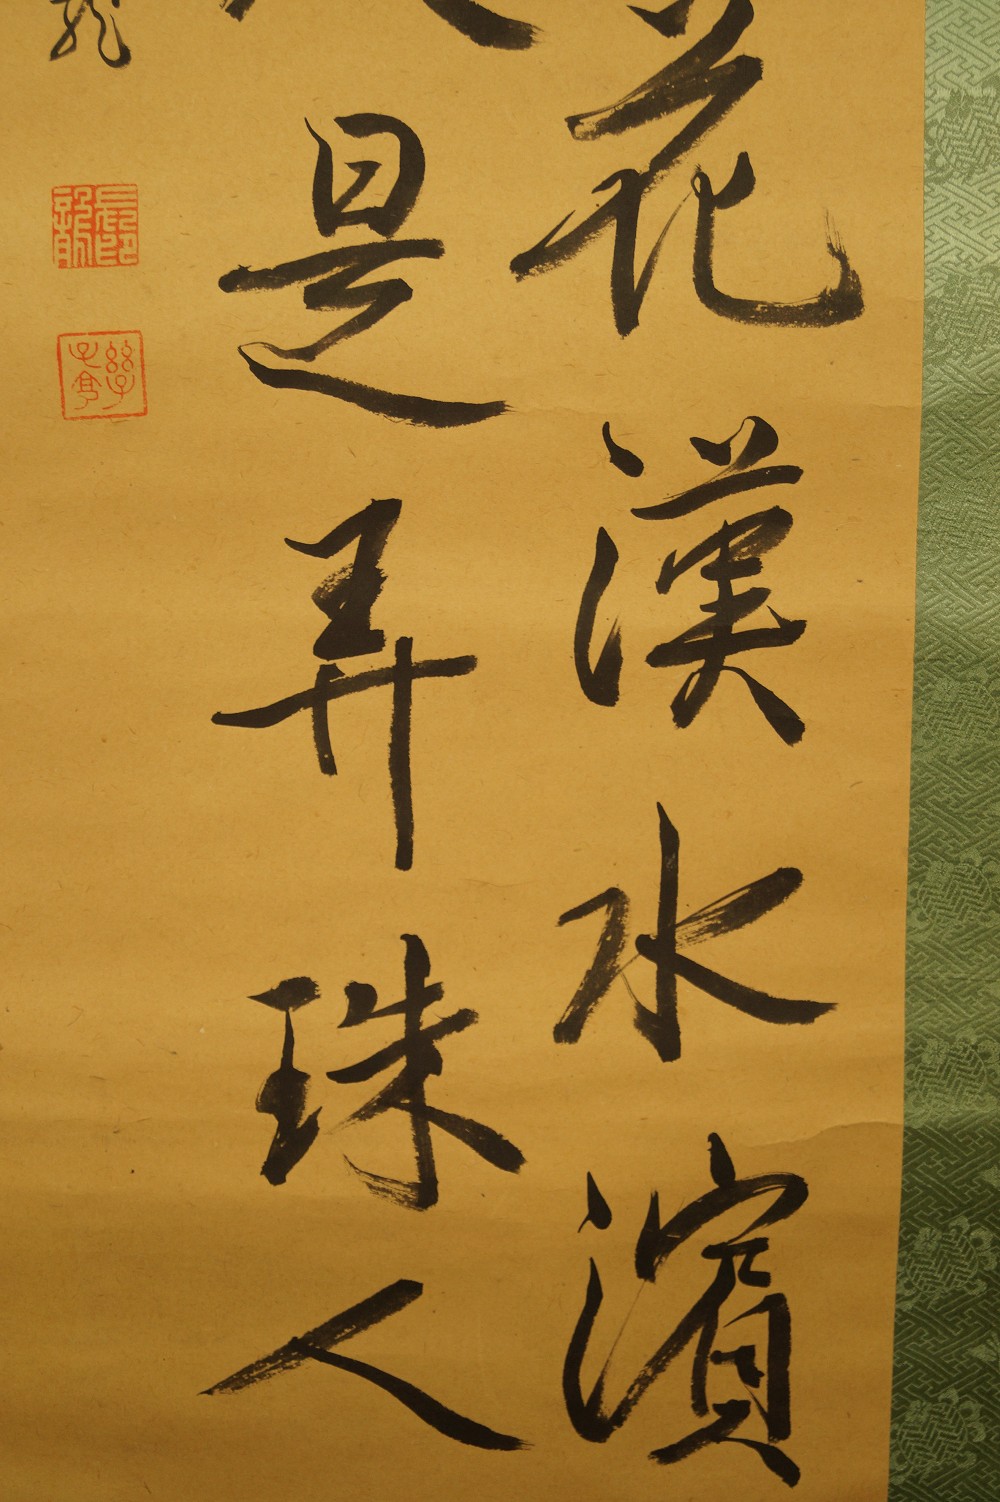 花漢水濱
是弄珠人
龍